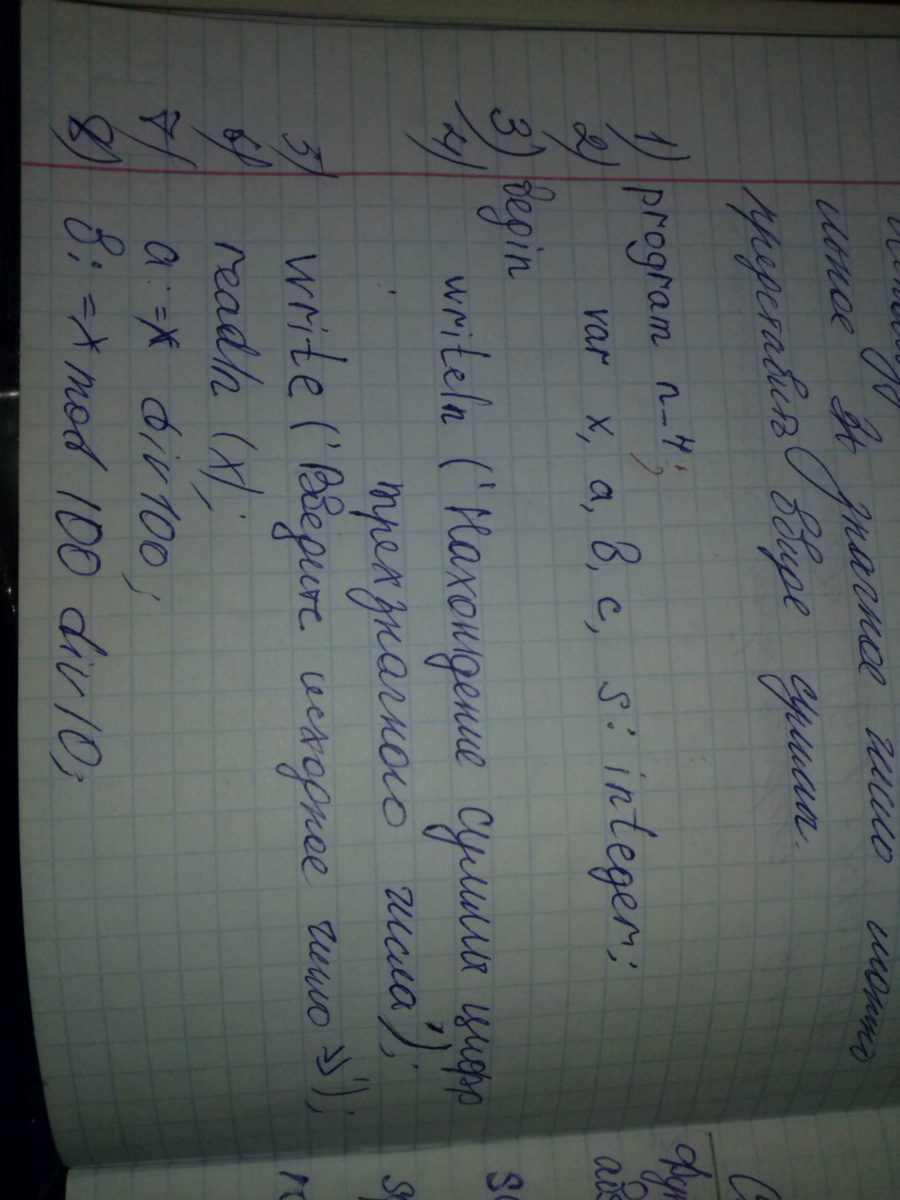 ное 3х значное число можно
преставить ввиде суммы.
1) program n_4;
2) var x, a, b, c, s: integer;
3) begin
4) writeln ('Нахождение суммы цифр
трехзначного числа');
5) write ('Введите исходнее число =>');
6) readln (x);
7) a:=x div 100;
8) b:=x mod 100 div 10;